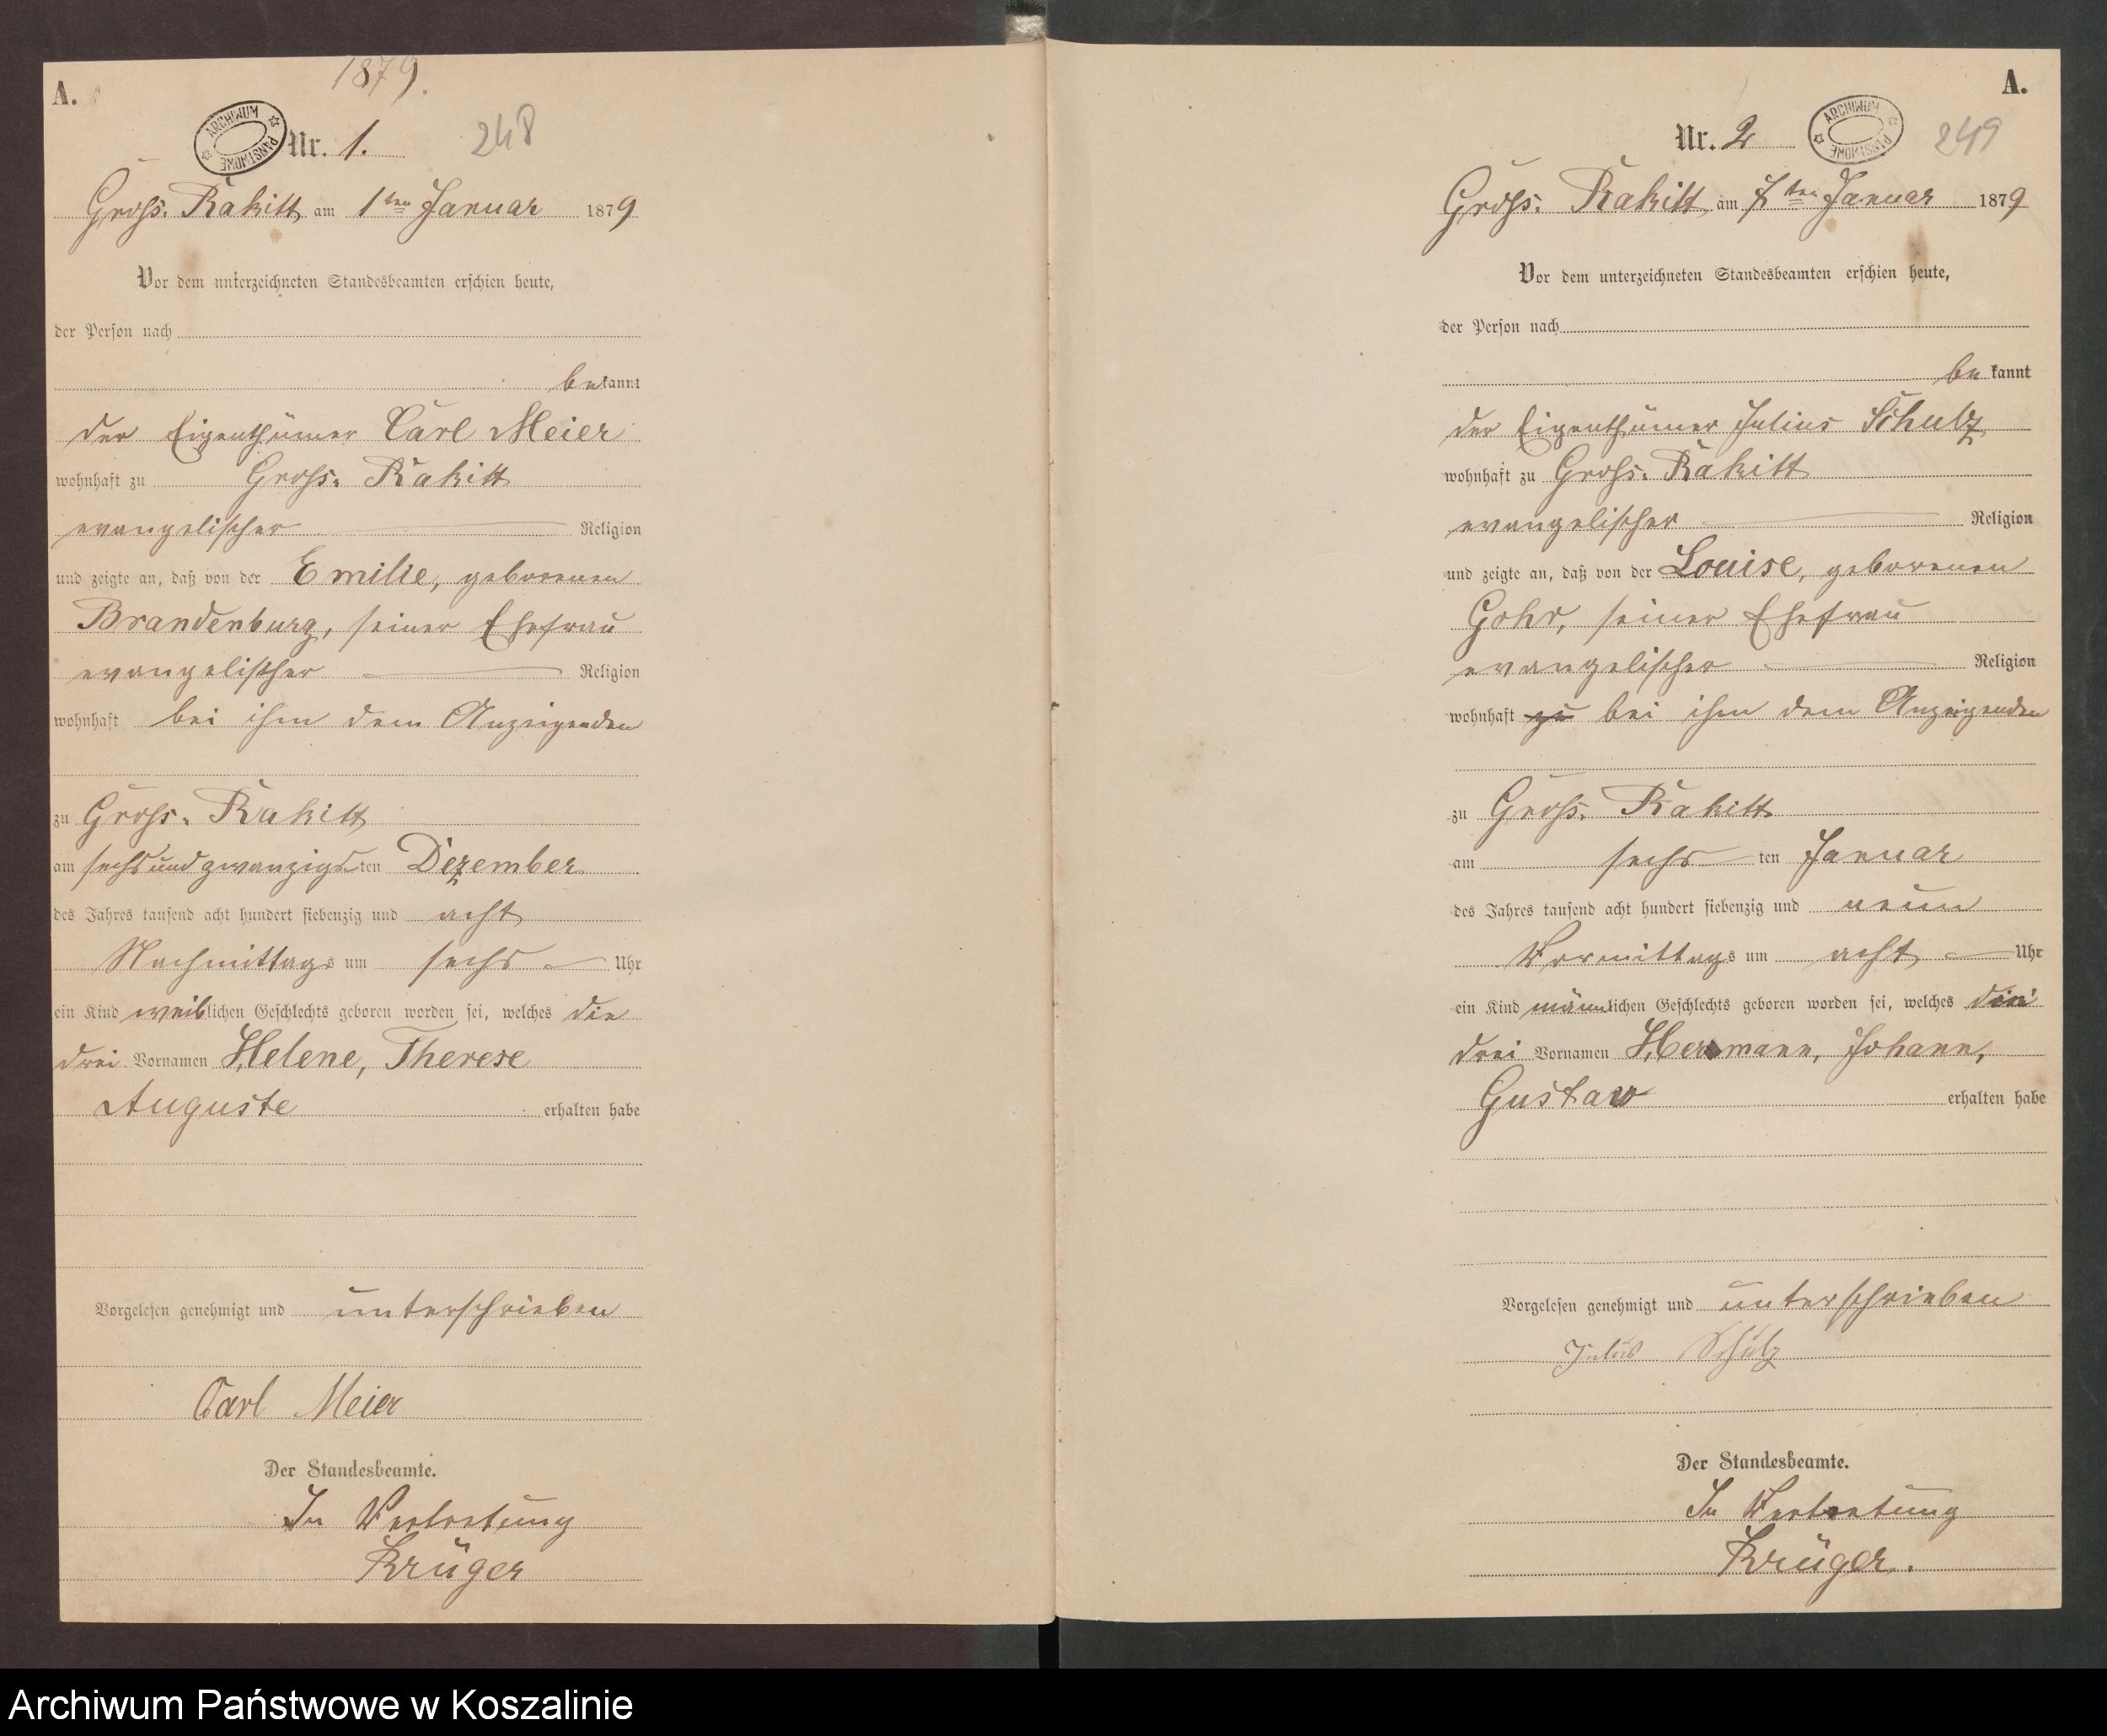 1879.
A.
ARCHIWUM PAŃSTWOWE
Nr. 1.
248
Gross-Rakitt am 1ten Januar 1879
Vor dem unterzeichneten Standesbeamten erschien heute,
der Person nach
bekannt
der Eigenthümer Carl Meier
wohnhaft zu Gross-Rakitt
evangelischer Religion
und zeigte an, daß von der Emilie, geborenen
Brandenburg, seiner Ehefrau
evangelischer Religion
wohnhaft bei ihm dem Anzeigenden
zu Gross-Rakitt
am sechs und zwanzigsten Dezember
des Jahres tausend acht hundert siebenzig und acht
Nachmittags um sechs Uhr
ein Kind weiblichen Geschlechts geboren worden sei, welches die
drei Vornamen Helene, Therese
Auguste erhalten habe
Vorgelesen genehmigt und unterschrieben
Carl Meier
Der Standesbeamte.
In Vertretung
Krüger
A.
Nr. 2
ARCHIWUM PAŃSTWOWE
249
Gross-Rakitt am 7ten Januar 1879
Vor dem unterzeichneten Standesbeamten erschien heute,
der Person nach
bekannt
der Eigenthümer Julius Schulz
wohnhaft zu Gross-Rakitt
evangelischer Religion
und zeigte an, daß von der Louise, geborenen
Gohr, seiner Ehefrau
evangelischer Religion
wohnhaft zu bei ihm dem Anzeigenden
zu Gross-Rakitt
am sechsten Januar
des Jahres tausend acht hundert siebenzig und neun
Vormittags um acht Uhr
ein Kind männlichen Geschlechts geboren worden sei, welches die
drei Vornamen Hermann, Johann,
Gustav erhalten habe
Vorgelesen genehmigt und unterschrieben
Julius Schulz
Der Standesbeamte.
In Vertretung
Krüger.
Archiwum Państwowe w Koszalinie